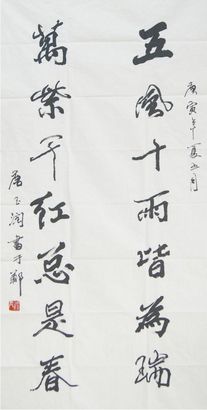 庚寅年夏五月
五風十雨皆為瑞
萬紫千紅總是春
唐玉潤書于鄭